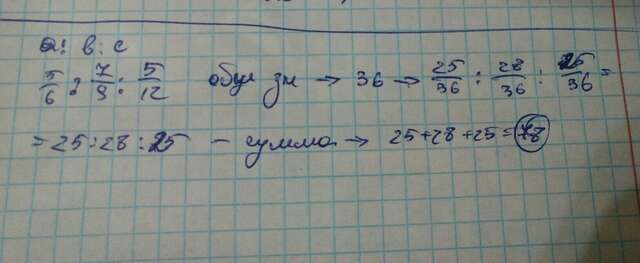 a : b : c
5/6 : 7/9 : 5/12 общ зн → 36 → 25/36 : 28/36 : 25/36 =
= 25 : 28 : 25 – сумма → 25+28+25=78